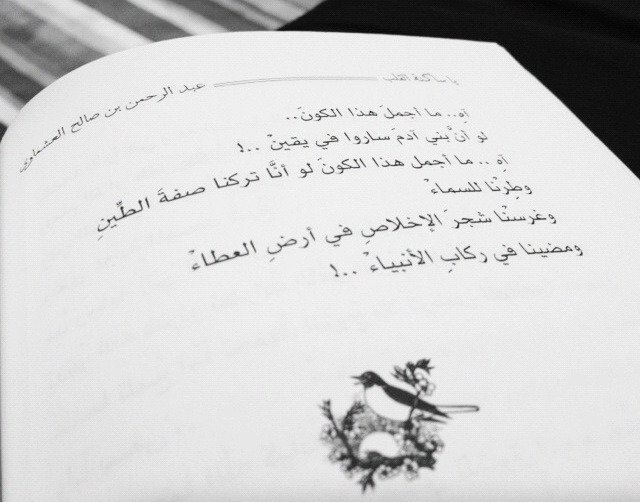 يا ساكنة القلب
عبد الرحمن بن صالح العشماوي
آهِ.. ما أجملَ هذا الكونَ..
لو أنَّ بني آدمَ ساروا في يقينْ ..!
آهِ .. ما أجمل هذا الكونَ لو أنَّا تركنا صفةَ الطِّينِ
وطِرْنا للسماءْ
وغرسنْا شجرَ الإخلاصِ في أرضِ العطاءْ
ومضينا في ركابِ الأنبياءْ ..!